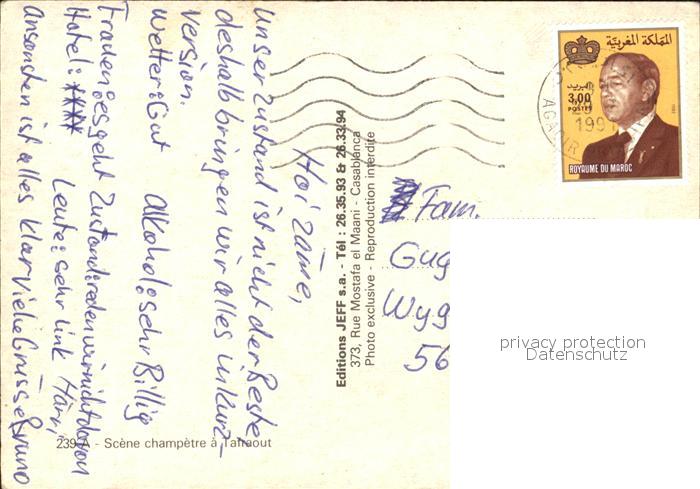 Hoi Zäme,
Unser Zustand ist nicht der Beste,
deshalb bringen wir alles in Kurz-
version.
Wetter: Gut Alkohol: sehr Billig
Frauen: es geht Zustand: reden wir nicht davon
Hotel: **** Leute: sehr link Härr,
Ansonsten ist alles klar Viele Grüsse Bruno
Editions JEFF s.a. - Tél : 26.35.93 & 26.33.94
373, Rue Mostafa el Maani - Casablanca
Photo exclusive - Reproduction interdite
239 A - Scène champètre à Tafraout
المملكة المغربية
البريد
3,00
POSTES
ROYAUME DU MAROC
AGADIR
1991
Fam.
Gug
Wyg
56
privacy protection
Datenschutz